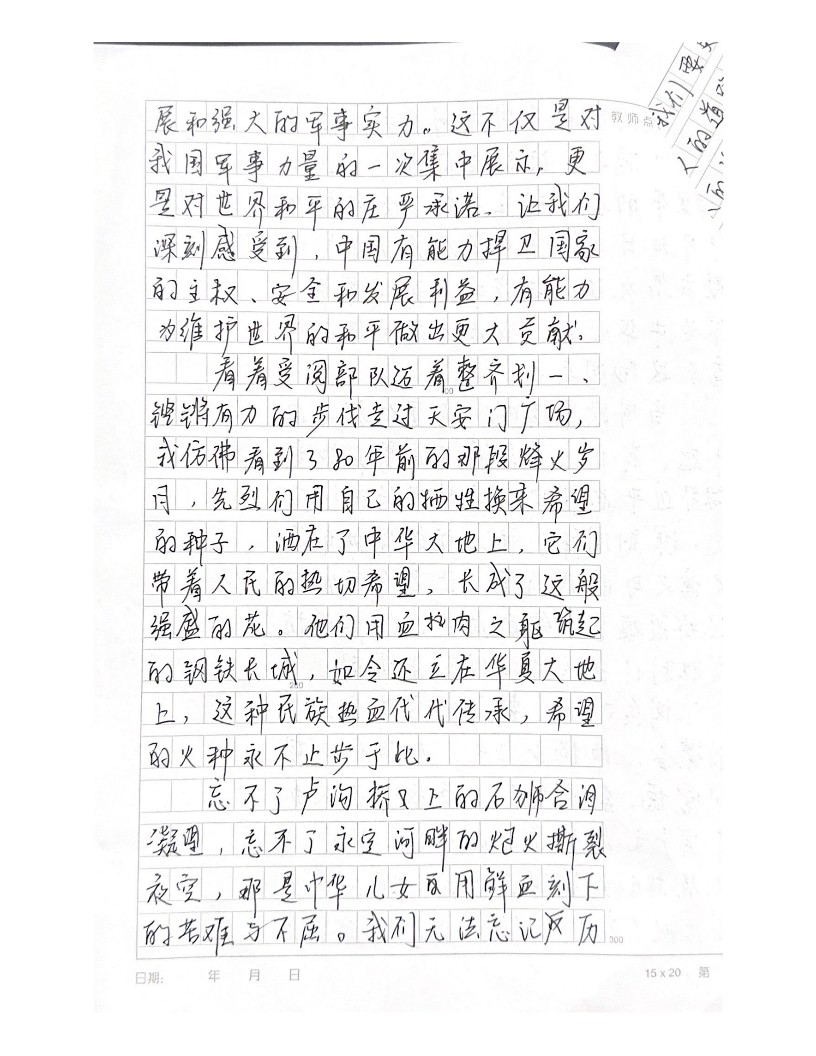 我们要
人的道
教师点
展和强大的军事实力。这不仅是对
我国军事力量的一次集中展示,更
是对世界和平的庄严承诺、让我们
深刻感受到,中国有能力捍卫国家
的主权、安全和发展利益,有能力
为维护世界的和平做出更大贡献。
看着受阅部队迈着整齐划一、
100
铿锵有力的步伐走过天安门广场,
我仿佛看到了80年前的那段烽火岁
月,先烈们用自己的牺牲换来希望
的种子,洒在了中华大地上,它们
带着人民的热切希望,长成了这般
强盛的花。他们用血拟肉之躯筑起
的钢铁长城,如今还立在华夏大地
200
上,这种民族热血代代传承,希望
的火种永不止步于此.
忘不了卢沟桥又上的石狮含泪
凝望,忘不了永定河畔的炮火撕裂
夜空,那是中华儿女用鲜血刻下
的苦难与不屈。我们无法忘记历
300
日期: 年 月 日
15×20 第